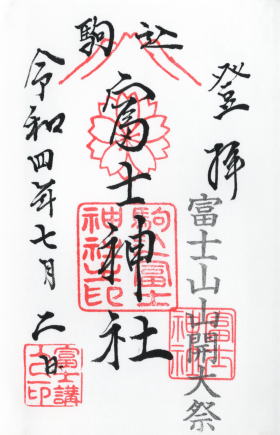 登拝
富士山山開大祭
富士神社
駒込
富士神社
駒込富士
神社之印
令和四年七月二日
富士講
之印